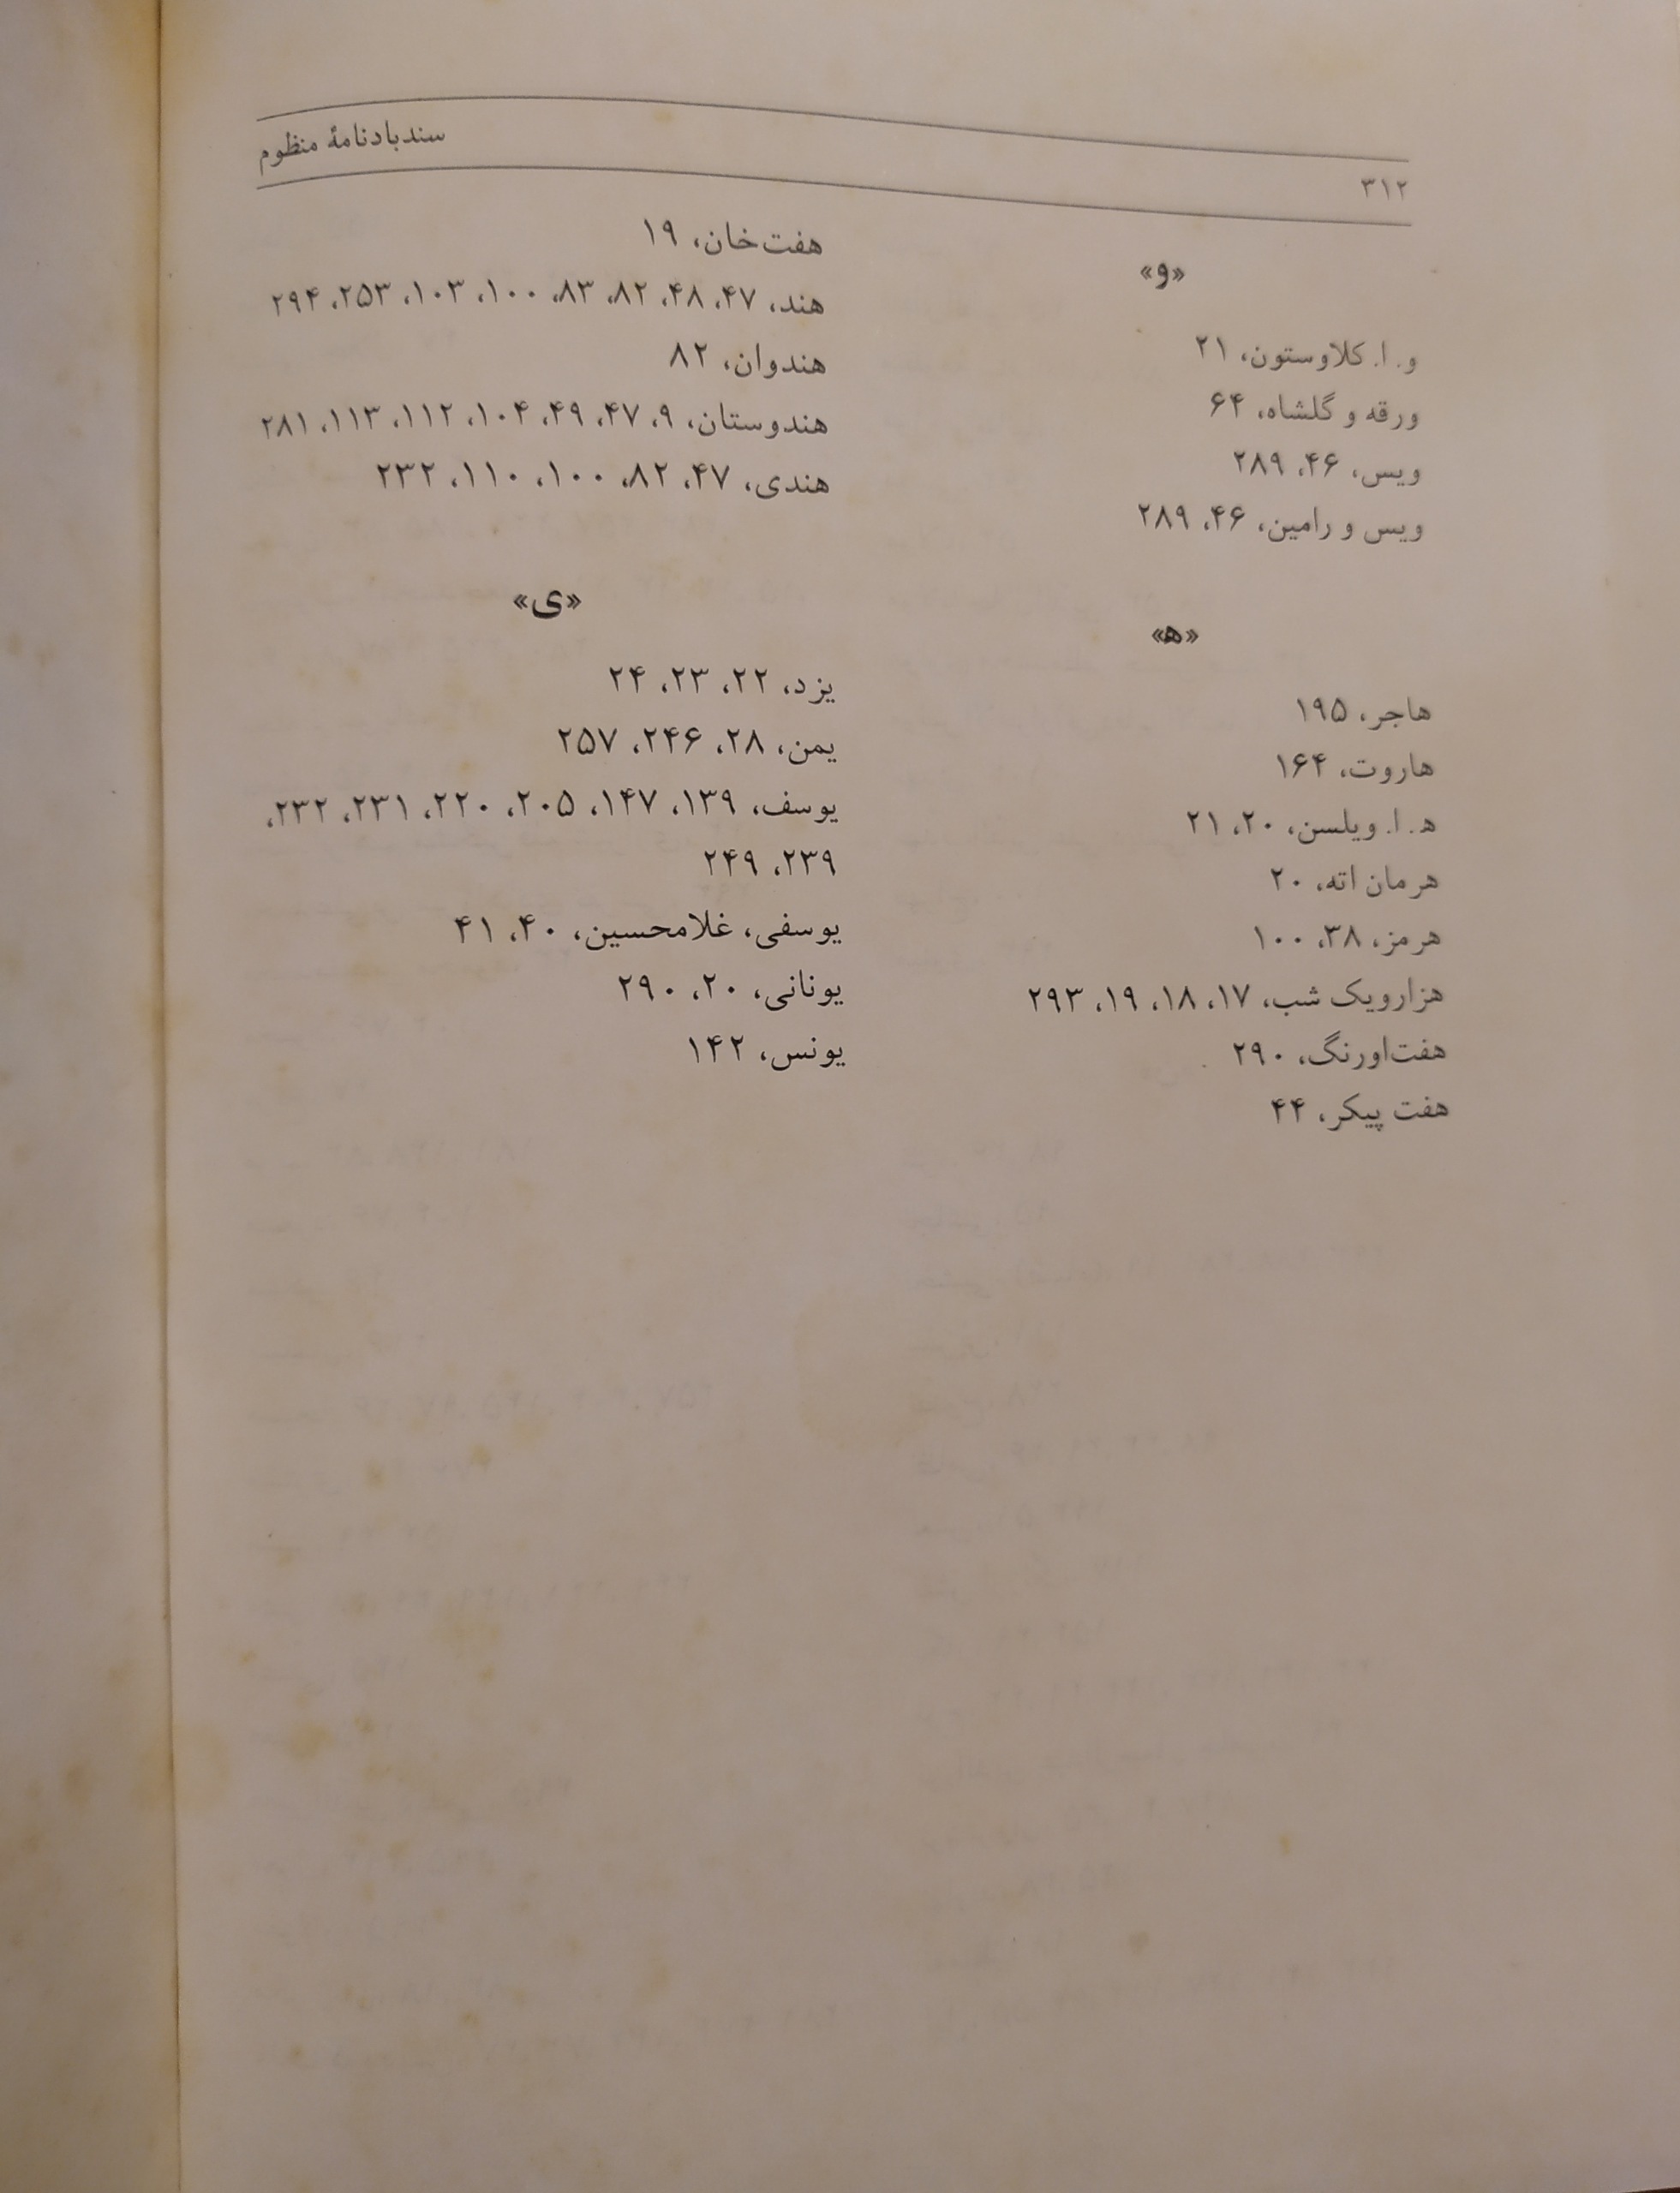 ۳۱۲
سندبادنامهٔ منظوم
«و»
و. ا. کلاوستون، ۲۱
ورقه و گلشاه، ۶۴
ویس، ۴۶، ۲۸۹
ویس و رامین، ۴۶، ۲۸۹
«ه»
هاجر، ۱۹۵
هاروت، ۱۶۴
ه. ا. ویلسن، ۲۰، ۲۱
هرمان اته، ۲۰
هرمز، ۳۸، ۱۰۰
هزارویک شب، ۱۷، ۱۸، ۱۹، ۲۹۳
هفت‌اورنگ، ۲۹۰
هفت پیکر، ۴۴
هفت‌خان، ۱۹
هند، ۴۷، ۴۸، ۸۲، ۸۳، ۱۰۰، ۱۰۳، ۲۵۳، ۲۹۴
هندوان، ۸۲
هندوستان، ۹، ۴۷، ۴۹، ۱۰۴، ۱۱۲، ۱۱۳، ۲۸۱
هندی، ۴۷، ۸۲، ۱۰۰، ۱۱۰، ۲۳۲
«ی»
یزد، ۲۲، ۲۳، ۲۴
یمن، ۲۸، ۲۴۶، ۲۵۷
یوسف، ۱۳۹، ۱۴۷، ۲۰۵، ۲۲۰، ۲۳۱، ۲۳۲،
۲۳۹، ۲۴۹
یوسفی، غلامحسین، ۴۰، ۴۱
یونانی، ۲۰، ۲۹۰
یونس، ۱۴۲